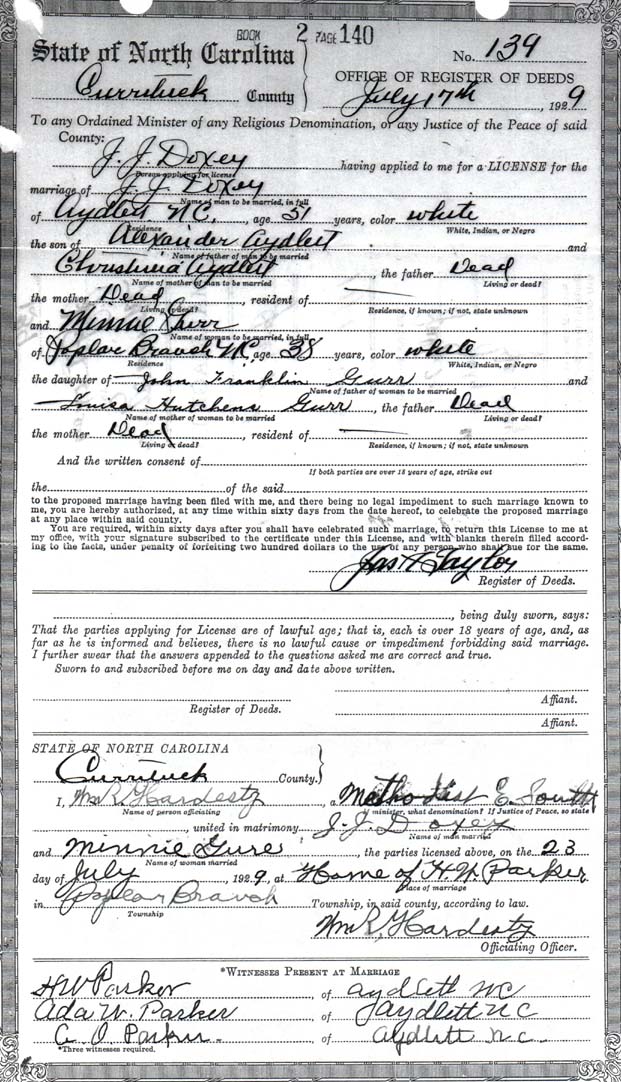 BOOK 2 PAGE 140
State of North Carolina
No. 139
OFFICE OF REGISTER OF DEEDS
Currituck County
July 17th, 1929
To any Ordained Minister of any Religious Denomination, or any Justice of the Peace of said
County:
J. J. Doxey having applied to me for a LICENSE for the
Person applying for license
marriage of J. J. Doxey
Name of man to be married, in full
of Aydlett NC, age 51 years, color white
Residence White, Indian, or Negro
the son of Alexander Aydlett and
Name of father of man to be married
Christina Aydlett, the father Dead
Name of mother of man to be married Living or dead?
the mother Dead, resident of
Living or dead? Residence, if known; if not, state unknown
and Minnie Gurr
Name of woman to be married, in full
of Poplar Branch NC, age 38 years, color white
Residence White, Indian, or Negro
the daughter of John Franklin Gurr and
Name of father of woman to be married
Louisa Hutchens Gurr, the father Dead
Name of mother of woman to be married Living or dead?
the mother Dead, resident of
Living or dead? Residence, if known; if not, state unknown
And the written consent of
If both parties are over 18 years of age, strike out
the of the said
to the proposed marriage having been filed with me, and there being no legal impediment to such marriage known to
me, you are hereby authorized, at any time within sixty days from the date hereof, to celebrate the proposed marriage
at any place within said county.
You are required, within sixty days after you shall have celebrated such marriage, to return this License to me at
my office, with your signature subscribed to the certificate under this License, and with blanks therein filled accord-
ing to the facts, under penalty of forfeiting two hundred dollars to the use of any person who shall sue for the same.
Jas A Taylor
Register of Deeds.
, being duly sworn, says:
That the parties applying for License are of lawful age; that is, each is over 18 years of age, and, as
far as he is informed and believes, there is no lawful cause or impediment forbidding said marriage.
I further swear that the answers appended to the questions asked me are correct and true.
Sworn to and subscribed before me on day and date above written.
Affiant.
Register of Deeds.
Affiant.
STATE OF NORTH CAROLINA
Currituck County.
I, Wm R. Hardesty, a Methodist E. South
Name of person officiating If minister, what denomination? If Justice of Peace, so state
, united in matrimony J. J. Doxey
Name of man married
and Minnie Gurr, the parties licensed above, on the 23
Name of woman married
day of July, 1929, at Home of H W Parker
Place of marriage
in Poplar Branch Township, in said county, according to law.
Township
Wm R. Hardesty
Officiating Officer.
*WITNESSES PRESENT AT MARRIAGE
H W Parker of Aydlett NC
Ada W. Parker of Aydlett NC
Parker of Aydlett N.C.
*Three witnesses required.